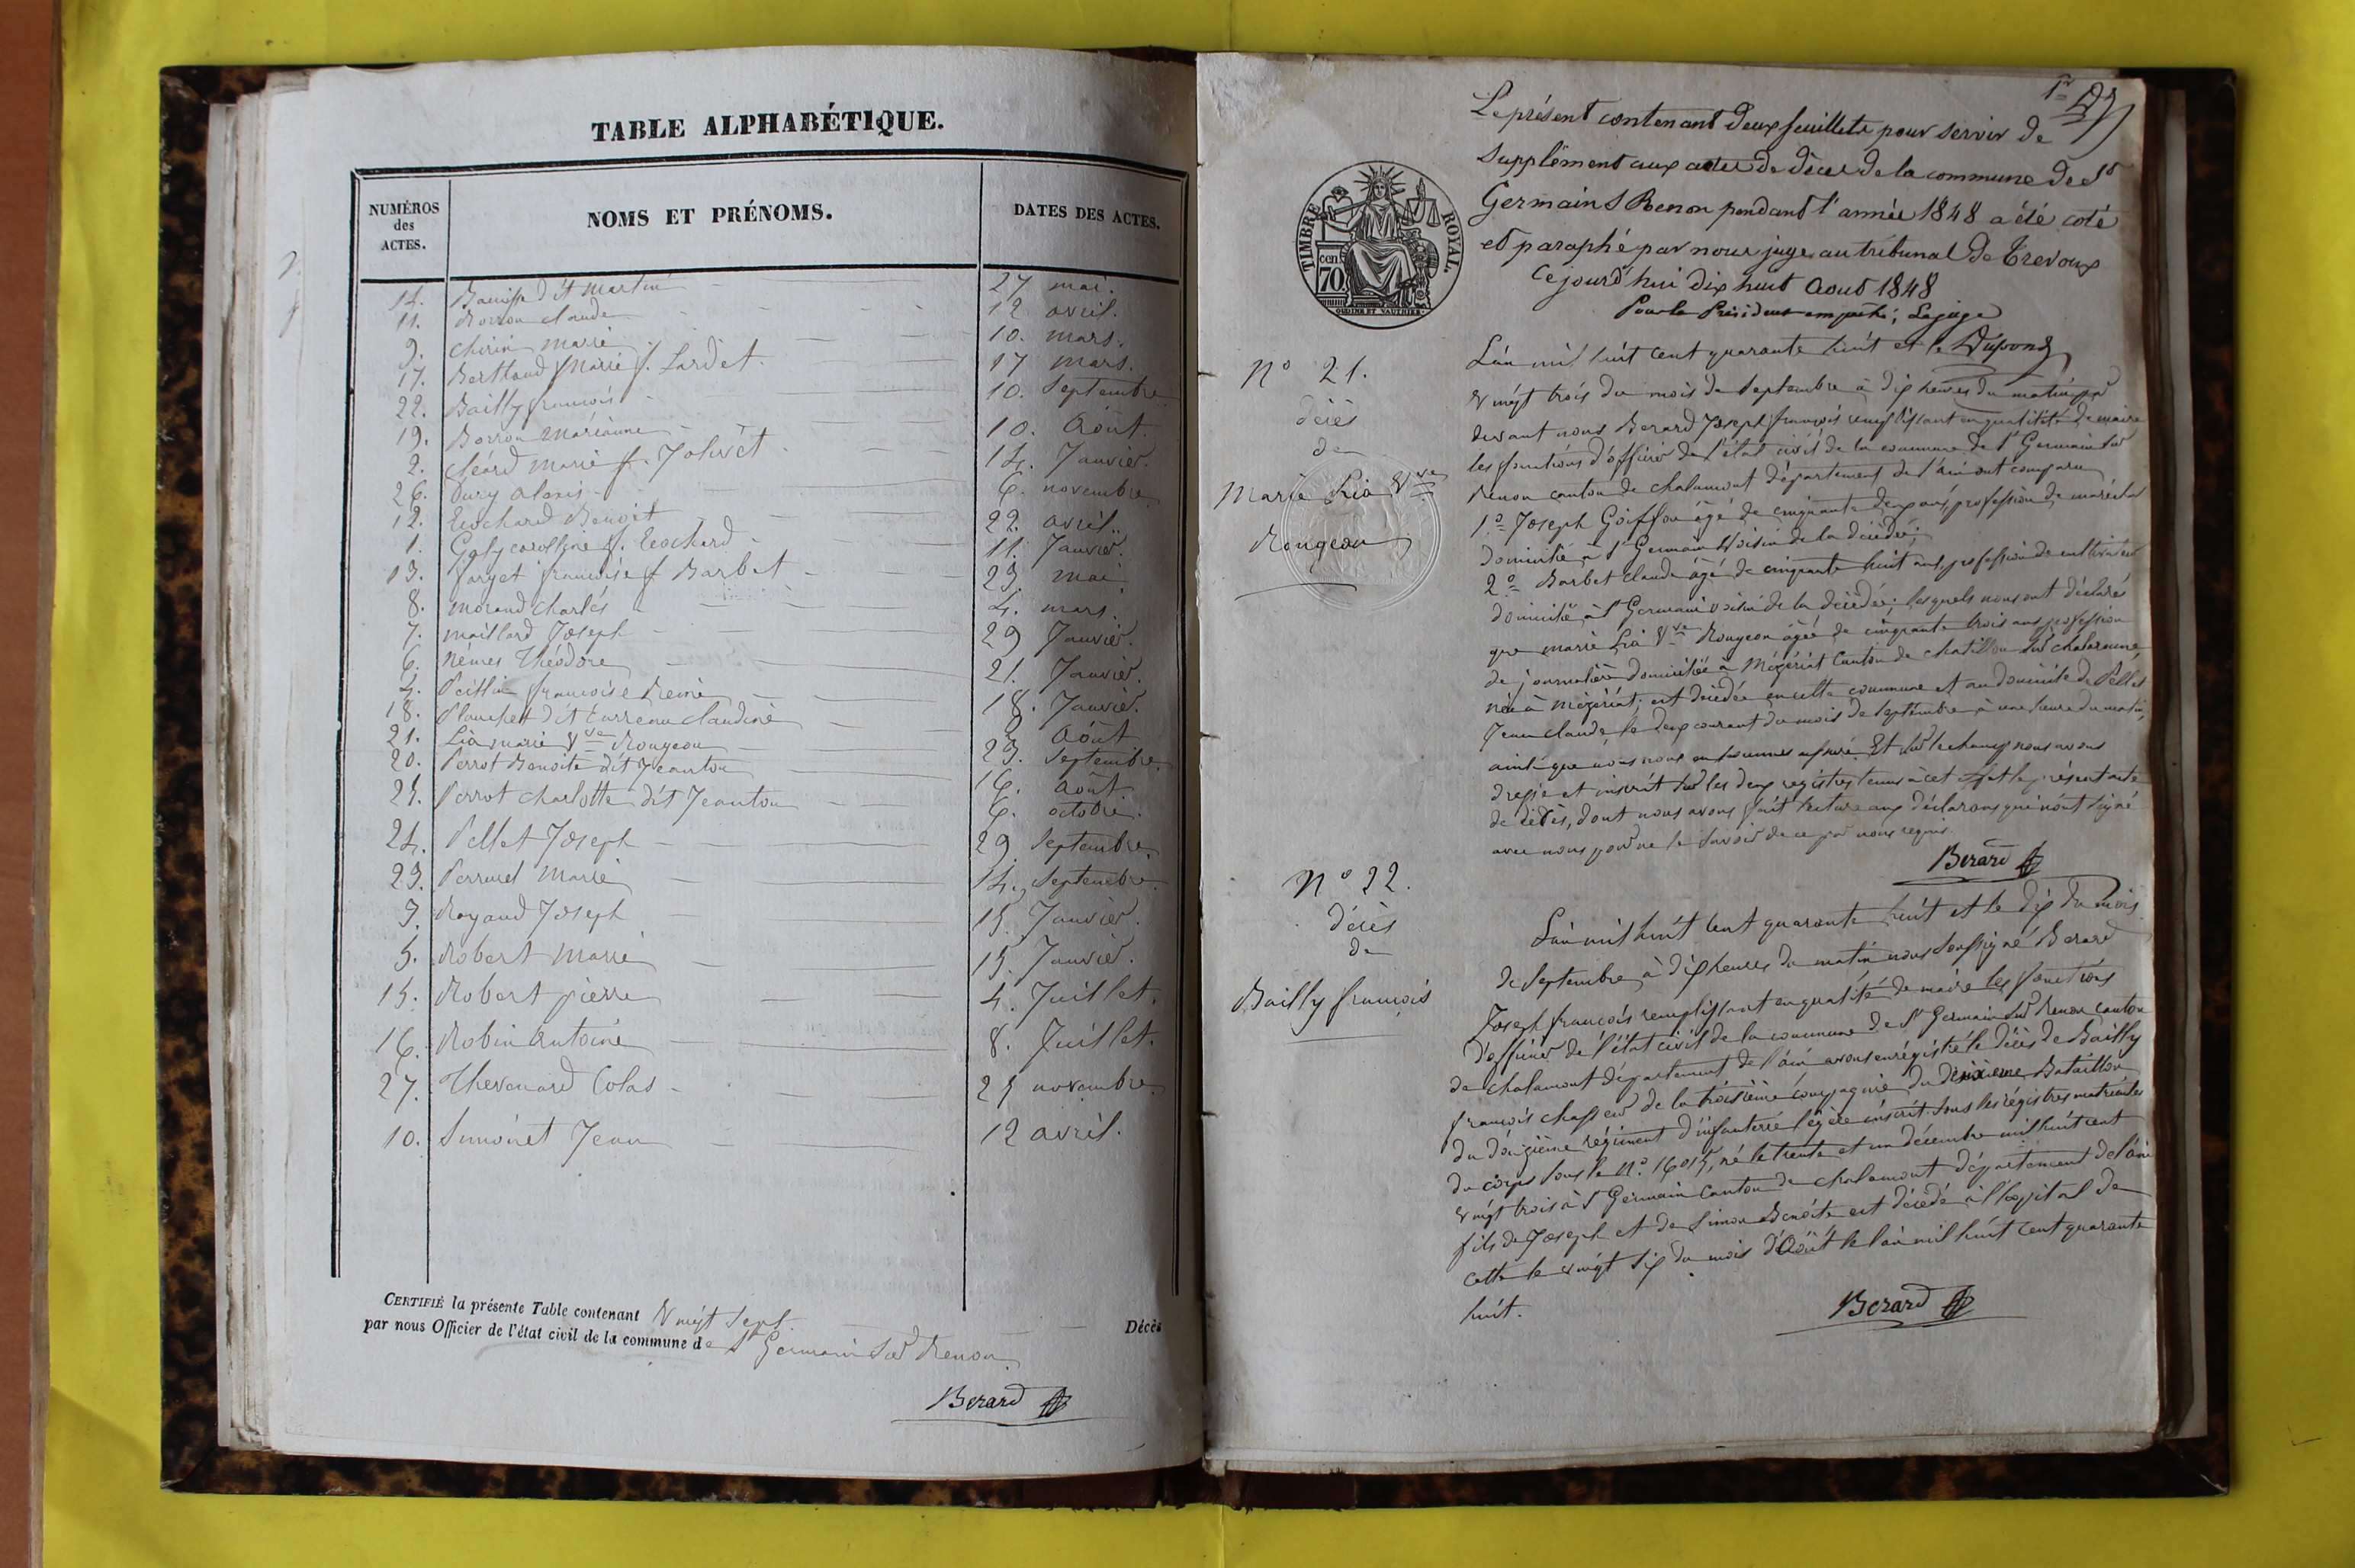 TABLE ALPHABÉTIQUE.
NUMÉROS des ACTES.
NOMS ET PRÉNOMS.
DATES DES ACTES.
14. dit Martin 27 mai.
11. Borron Claude 12 avril.
9. Chirin Marie 10. mars.
17. Berthaud Marie f. Lardet. 17 mars.
22. Bailly françois 10. Septembre
19. Borron Marianne 10. Août.
2. Cléard Marie f. Joluvet 14. Janvier.
26. Dury Alexis 6. novembre
12. Ecochard Benoit 22. avril.
1. Galy caroline f. Ecochard 11. Janvier.
13. forget françoise f Barbet 23. mai
8. Morand Charles 4. mars.
7. Maillard Joseph 29 Janvier.
6. Némes Théodore 21. Janvier.
4. françoise Reine 18. Janvier.
18. Planchet dit Carreau Claudine 8 Août
21. Lia marie Vve Rougeon 23. Septembre.
20. Perrot Benoite dit Jeanton 16. Août.
25. Perrot Charlotte dit Jeanton 6. octobre.
24. Pellet Joseph 29 Septembre.
23. Perruel Marie 14. Septembre.
3. Royaud Joseph 15 Janvier.
5. Robert Marie 15. Janvier.
15. Robert pierre 4. Juillet.
16. Robin Antoine 8. Juillet.
27. Thevenard Colas 25 novembre
10. Simonet Jean 12 avril.
CERTIFIÉ la présente Table contenant Vingt Sept Décès
par nous Officier de l'état civil de la commune de St Germain Sur Renon
Berard
1er
Le présent contenant deux feuillets pour servir de
Supplément aux actes de décès de la commune de St
Germain S Renon pendant l'année 1848 a été coté
et paraphé par nous juge au tribunal de Trevoux
Cejourd'hui dix huit Aout 1848
Pour le Président empêché, Le juge
Dupond
TIMBRE ROYAL.
70 cen
OUDINE ET VAUTHIER.
N° 21.
décès
de
Marie Lia Vve
Rougeon
L'an mil huit cent quarante huit et le
vingt trois du mois de Septembre à dix heures du matin par
devant nous Berard Joseph françois remplissant en qualitité de maire
les fonctions d'officier de l'état civil de la commune de St Germain Sur
Renon canton de Chalamont département de l'ain ont comparu
1° Joseph Goiffon âgé de cinquante deux ans, profession de maréchal
domicilié à St Germain Voisin de la décédée;
2° Barbet Claude âgé de cinquante huit ans, profession de cultivateur
domicilié à St Germain voisin de la décédée; lesquels nous ont déclarés
que marie Lia Vve Rougeon âgée de cinquante trois ans profession
de journalière domiciliée à Mézériat Canton de Chatillon Sur Chalaronne,
née à Mézériat; est décédée en cette commune et au domicile de Pellet
Jean Claude, le deux courant du mois de Septembre à une heure du matin,
ainsi que nous nous en sommes assuré. Et Sur le champ nous avons
dressé et inscrit Sur les deux registres tenus à cet effet le présent acte
de décès, dont nous avons fait lecture aux déclarans qui n'ont signé
avec nous pour ne le Savoir de ce par nous requis.
Berard
N° 22.
décès
de
Bailly françois
L'an mil huit cent quarante huit et le dix du mois
de Septembre à dix heures du matin nous Soussigné Berard
Joseph françois remplissant en qualité de maire les fonctions
d'officier de l'état civil de la commune de St Germain Sur Renon Canton
de Chalamont département de l'ain avons enrégistré le décès de Bailly
françois chasseur de la troisième compagnie du deuxième Bataillon
du douzième régiment d'infanterie légère inscrit Sous les régistres matricules
du corps Sous le N° 16015, né le trente et un décembre mil huit cent
vingt trois à St Germain Canton de Chalamont département de l'ain
fils de Joseph et de Simon Benoite est décédé à l'hopital de
Cette le vingt Six du mois d'Août de l'an mil huit cent quarante
huit.
Berard